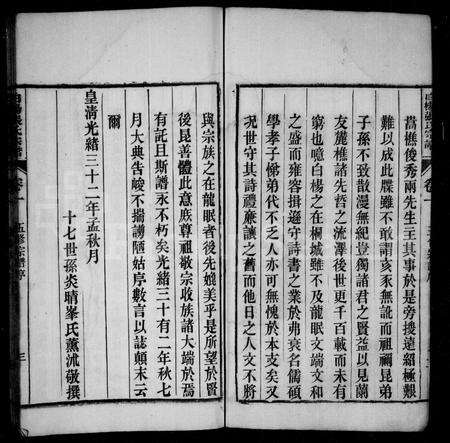 嵩樵俊秀兩先生主其事於是旁搜遠紹極艱
難以成此牒雖不敢謂亥豕無訛而祖禰昆弟
子孫不致散漫無紀豈獨諸君之賢益以見蘭
友麓樵諸先哲之流澤後世更千百載而未有
窮也噫白楊之在桐城雖不及龍眠文端文和
之盛而雍容揖遜守詩書之業於弗衰名儒碩
學孝子悌弟代不乏人亦可無愧於本支矣又
况世守子姓其詩禮廉讓之舊而他日之人文不將
與宗族之在龍眠者後先媲美乎是所望於賢
後昆善體此意底尊祖敬宗收族諸大端於焉
有託且斯譜永不朽矣光緒三十有二年秋七
月大典告峻不揣謭陋姑序數言以誌顛末云
爾
皇清光緒三十二年孟秋月
十七世孫炎晴峯氏薰沭敬撰
卷一
五修宗譜序
三